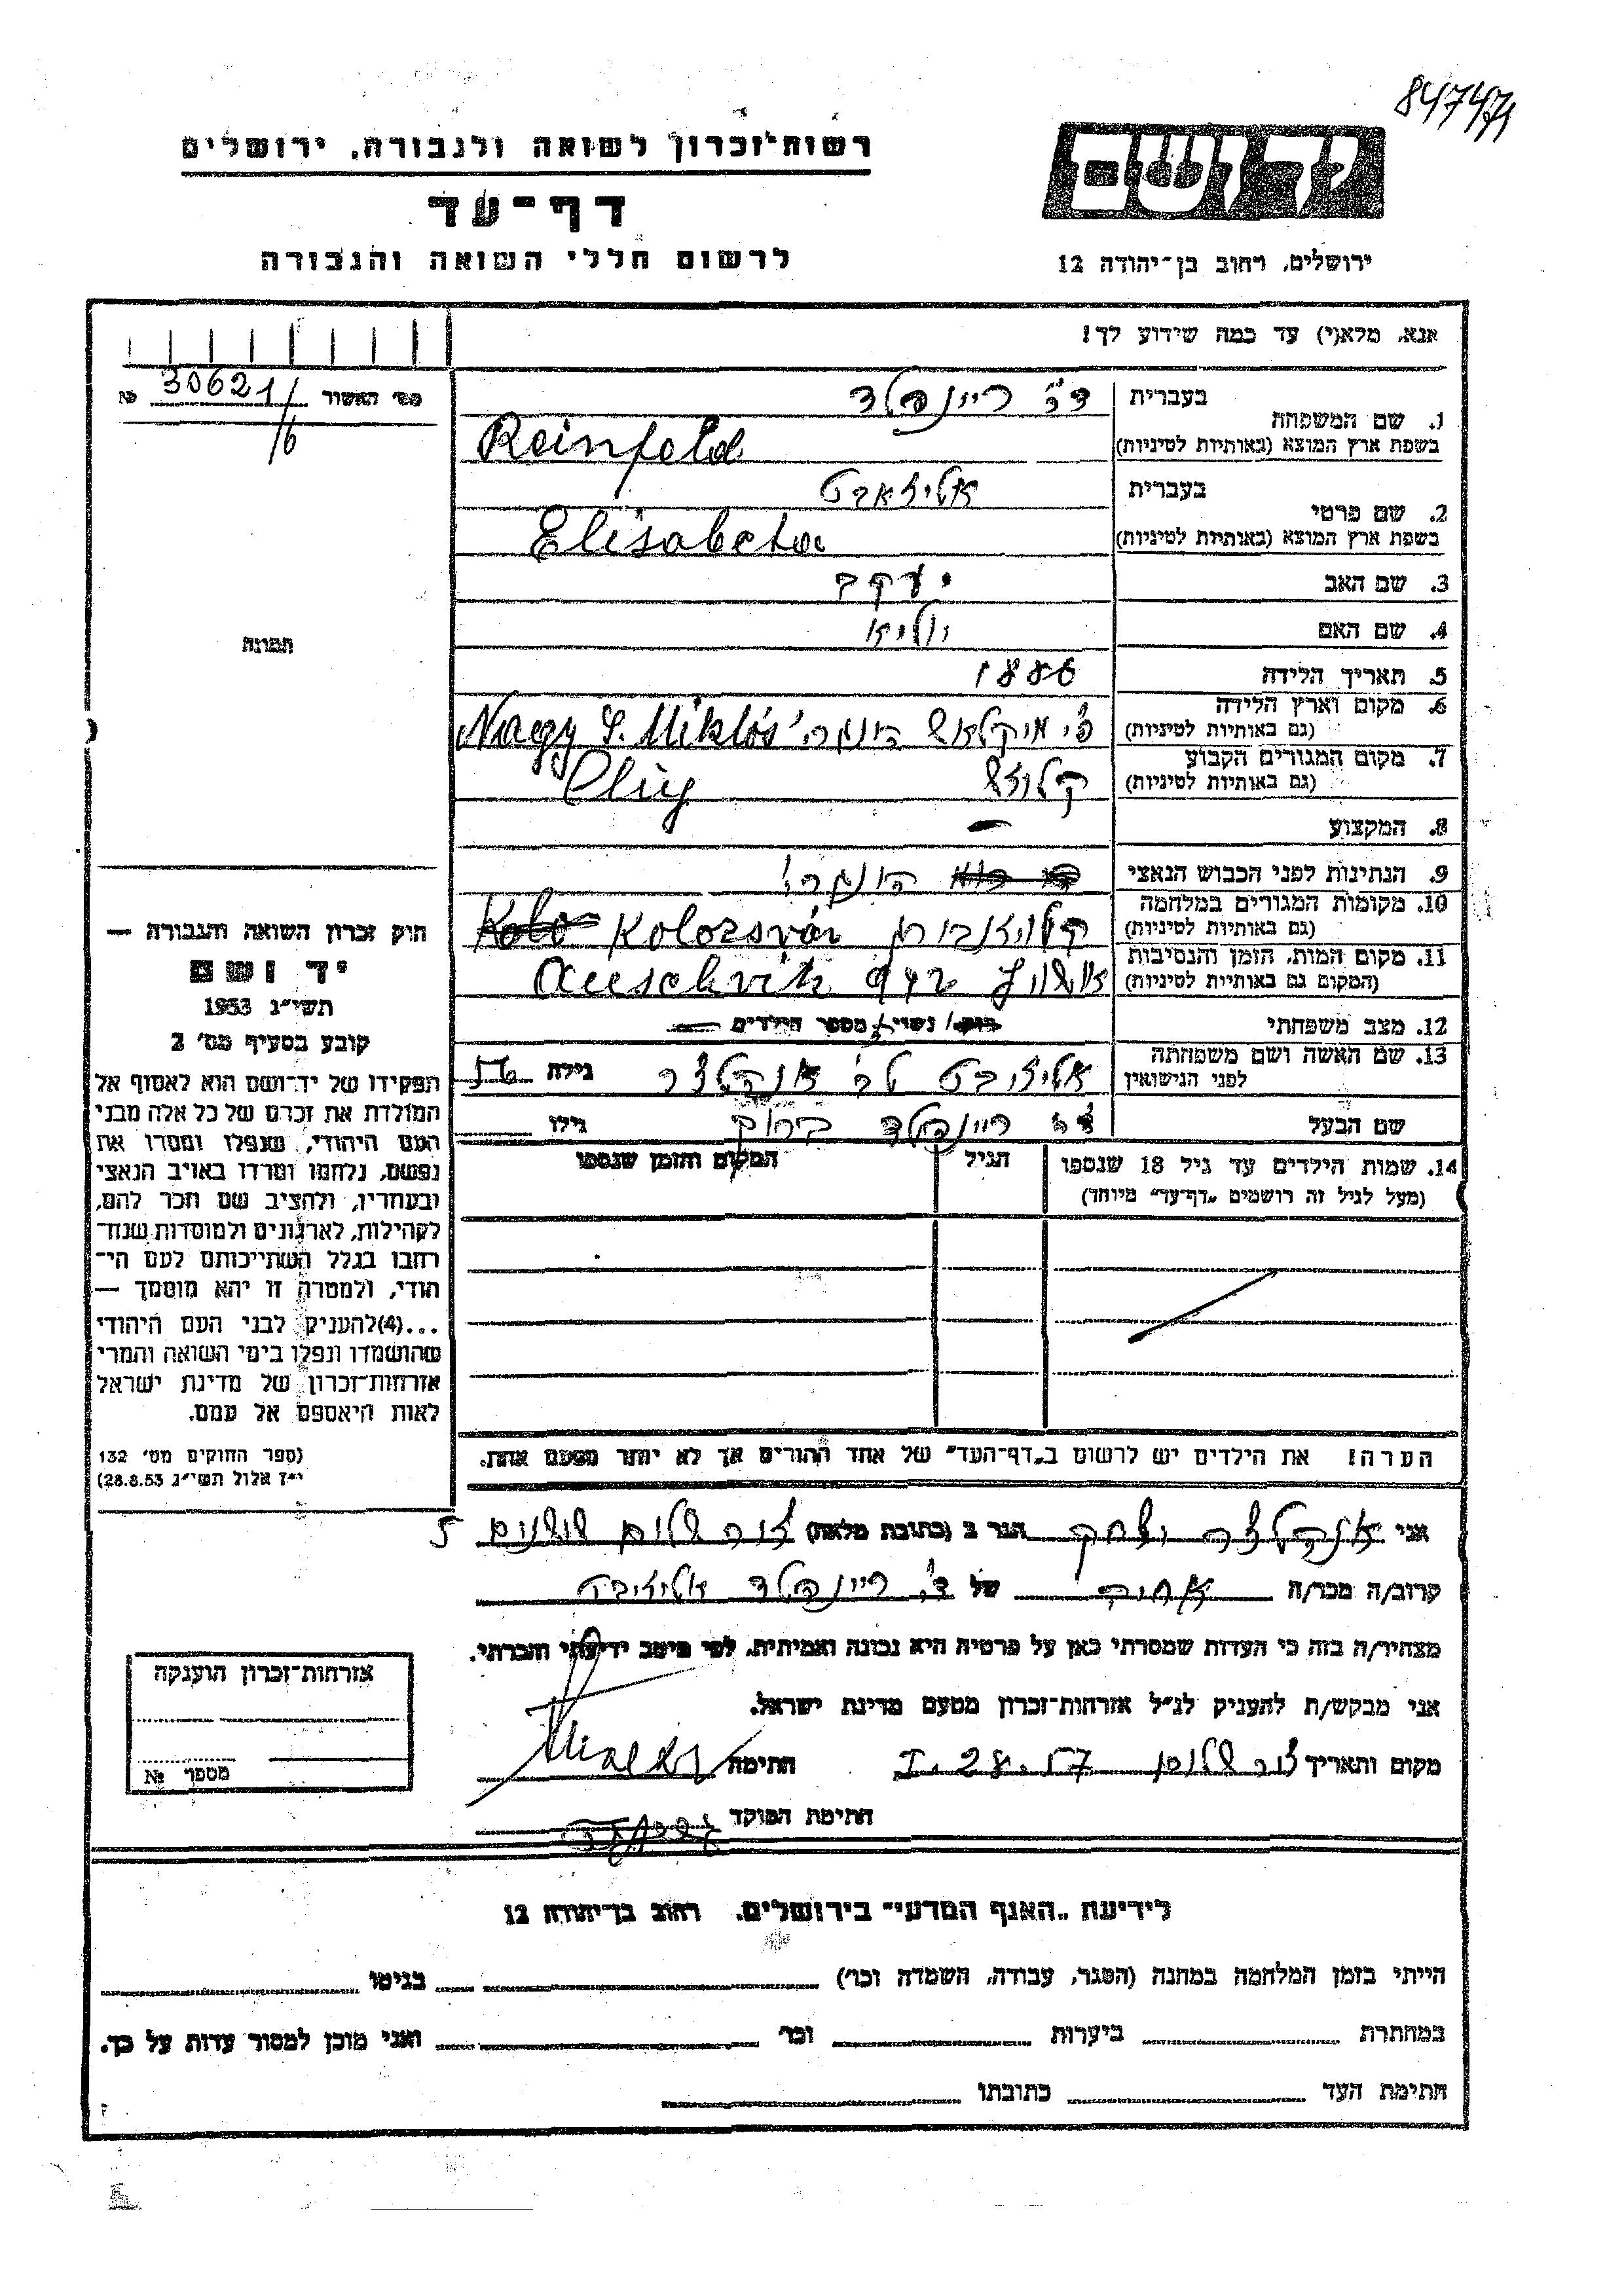 84747
רשות־זכרון לשואה ולגבורה, ירושלים
יד ושם
דף־עד
לרשום חללי השואה והגבורה
ירושלים, רחוב בן־יהודה 12
אנא, מלא(י) עד כמה שידוע לך!
מס׳ האשור 30621/6 №
1. שם המשפחה
בעברית ד״ר ריינפלד
בשפת ארץ המוצא (באותיות לטיניות) Reinfeld
2. שם פרטי
בעברית אליזאבט
בשפת ארץ המוצא (באותיות לטיניות) Elisabeta
3. שם האב יעקב
4. שם האם יוליא
5. תאריך הלידה 1886
6. מקום וארץ הלידה (גם באותיות לטיניות) מיקלוש הונגריה Nagy S. Miklós
7. מקום המגורים הקבוע (גם באותיות לטיניות) קלוז׳ Cluj
8. המקצוע —
9. הנתינות לפני הכבוש הנאצי הונגרי
10. מקומות המגורים במלחמה (גם באותיות לטיניות) Kolozsvár
11. מקום המות, הזמן והנסיבות (המקום גם באותיות לטיניות) Auschvitz
12. מצב משפחתי רווק/ נשוי/ מספר הילדים
13. שם האשה ושם משפחתה לפני הנישואין אליזבט גילה 56
שם הבעל ד״ר ריינפלד ברוך גילו
14. שמות הילדים עד גיל 18 שנספו (מעל לגיל זה רושמים „דף־עד" מיוחד)
הגיל
המקום והזמן שנספו
הערה! את הילדים יש לרשום ב„דף־העד" של אחד ההורים אך לא יותר מפעם אחת.
תמונה
חוק זכרון השואה והגבורה —
יד ושם
תשי״ג 1953
קובע בסעיף מס׳ 2
תפקידו של יד־ושם הוא לאסוף אל
המולדת את זכרם של כל אלה מבני
העם היהודי, שנפלו ומסרו את
נפשם, נלחמו ומרדו באויב הנאצי
ובעוזריו, ולהציב שם וזכר להם,
לקהילות, לארגונים ולמוסדות שנח־
רבו בגלל השתייכותם לעם הי־
הודי, ולמטרה זו יהא מוסמך —
...(4)להעניק לבני העם היהודי
שהושמדו ונפלו בימי השואה והמרי
אזרחות־זכרון של מדינת ישראל
לאות היאספם אל עמם.
(ספר החוקים מס׳ 132
י״ז אלול תשי״ג 28.8.53)
אני יצחק הגר ב (כתובת מלאה) 5
קרוב/ה מכר/ה של ד״ר ריינפלד אליזבט
מצהיר/ה בזה כי העדות שמסרתי כאן על פרטיה היא נכונה ואמיתית, לפי מיטב ידיעתי והכרתי.
אני מבקש/ת להעניק לנ״ל אזרחות־זכרון מטעם מדינת ישראל.
מקום ותאריך I. 28. 57 חתימה
חתימת הפוקד
אזרחות־זכרון הוענקה
מספר №
לידיעת „האגף המדעי" בירושלים, רחוב בן־יהודה 12
הייתי בזמן המלחמה במחנה (הסגר, עבודה, השמדה וכו׳) בגיטו
במחתרת ביערות וכו׳ ואני מוכן למסור עדות על כך.
חתימת העד כתובתו